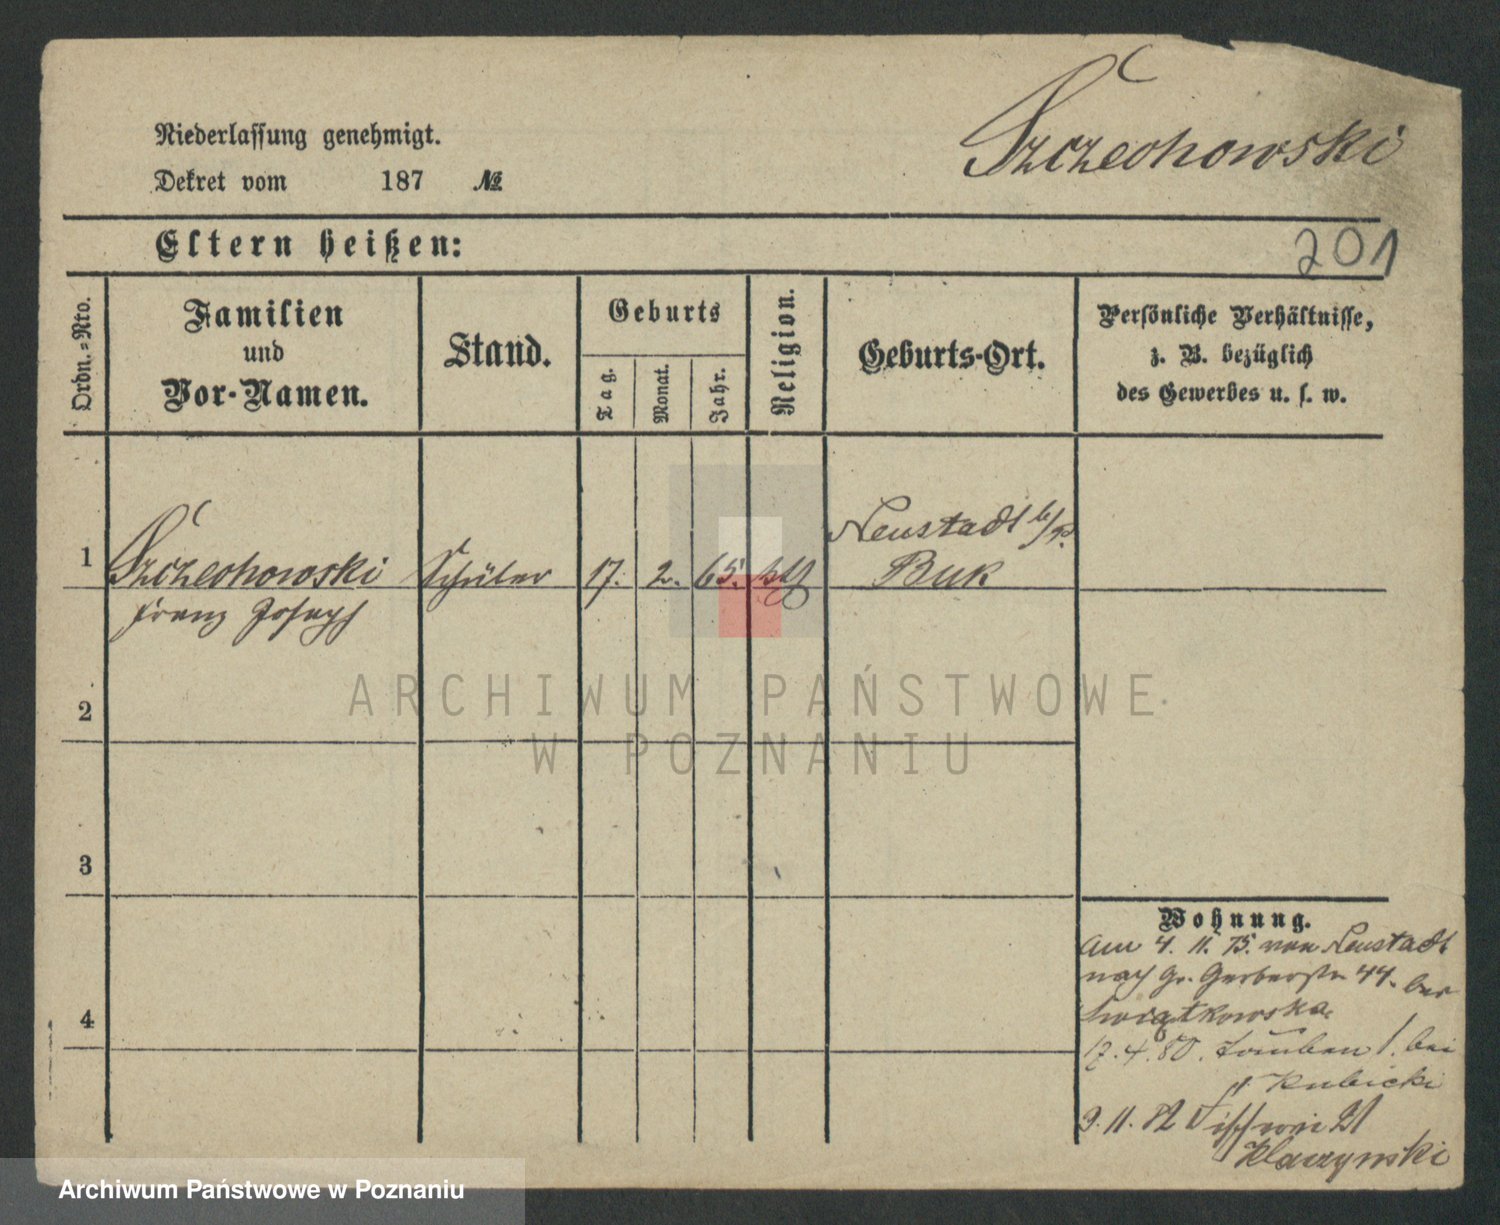 Szczechowski
Niederlassung genehmigt.
Dekret vom 187 №
Eltern heißen:
201
Ordn.=Nro.
Familien
und
Vor-Namen.
Stand.
Geburts
Tag.
Monat.
Jahr.
Religion.
Geburts-Ort.
Persönliche Verhältnisse,
z. B. bezüglich
des Gewerbes u. s. w.
1 Szczechowski Schüler 17. 2. 65. kth Neustadt b/P.
Franz Joseph Buk
2
3
4
Wohnung.
Am 4. 11. 75. von Neustadt
nach Gr. Gerberstr 44. bei
Swiątkowska
17. 4. 80. Tauben 1. bei
Kubicki
9. 11. 82 21
Klaczynski
ARCHIWUM PAŃSTWOWE
W POZNANIU
Archiwum Państwowe w Poznaniu